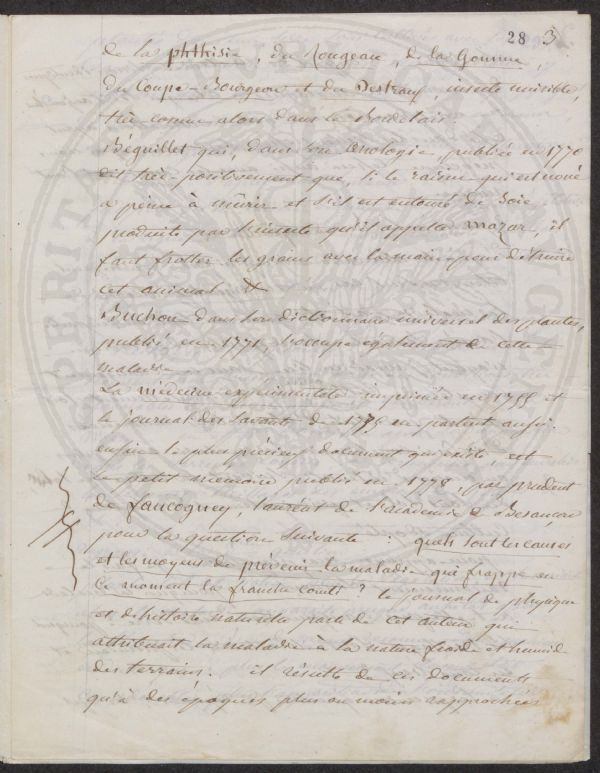 28 3
de la phthisie, du Rougeau, de la Gomme,
du Coupe-Bourgeon et du Destraux, insecte nuisible,
très connu alors dans le Bordelais.
Béguillet qui, dans son Œnologie, publiée en 1770
dit très-positivement que, si le raisin qui est noué
a peine à mûrir et s'il est entouré de soie
produite par l'insecte qu'il appelle mazar, il
faut frotter les grains avec la main pour détruire
cet animal &
Buchon dans son dictionnaire universel des plantes,
publié en 1771, s'occupe également de cette
maladie.
La médecine expérimentale imprimée en 1755 et
le journal des savants de 1775 en parlent aussi.
enfin le plus précieux document qui existe, est
le petit mémoire publié en 1778, par prudent
de faucogney, lauréat de l'académie de Besançon
pour la question suivante : quels sont les causes
et les moyens de prévenir la maladie qui frappe en
ce moment la franche comté ? le journal de physique
et d'histoire naturelle parle de cet auteur qui
attribuait la maladie à la nature froide et humide
des terrains. il résulte de ces documents
qu'à des époques plus ou moins rapprochées